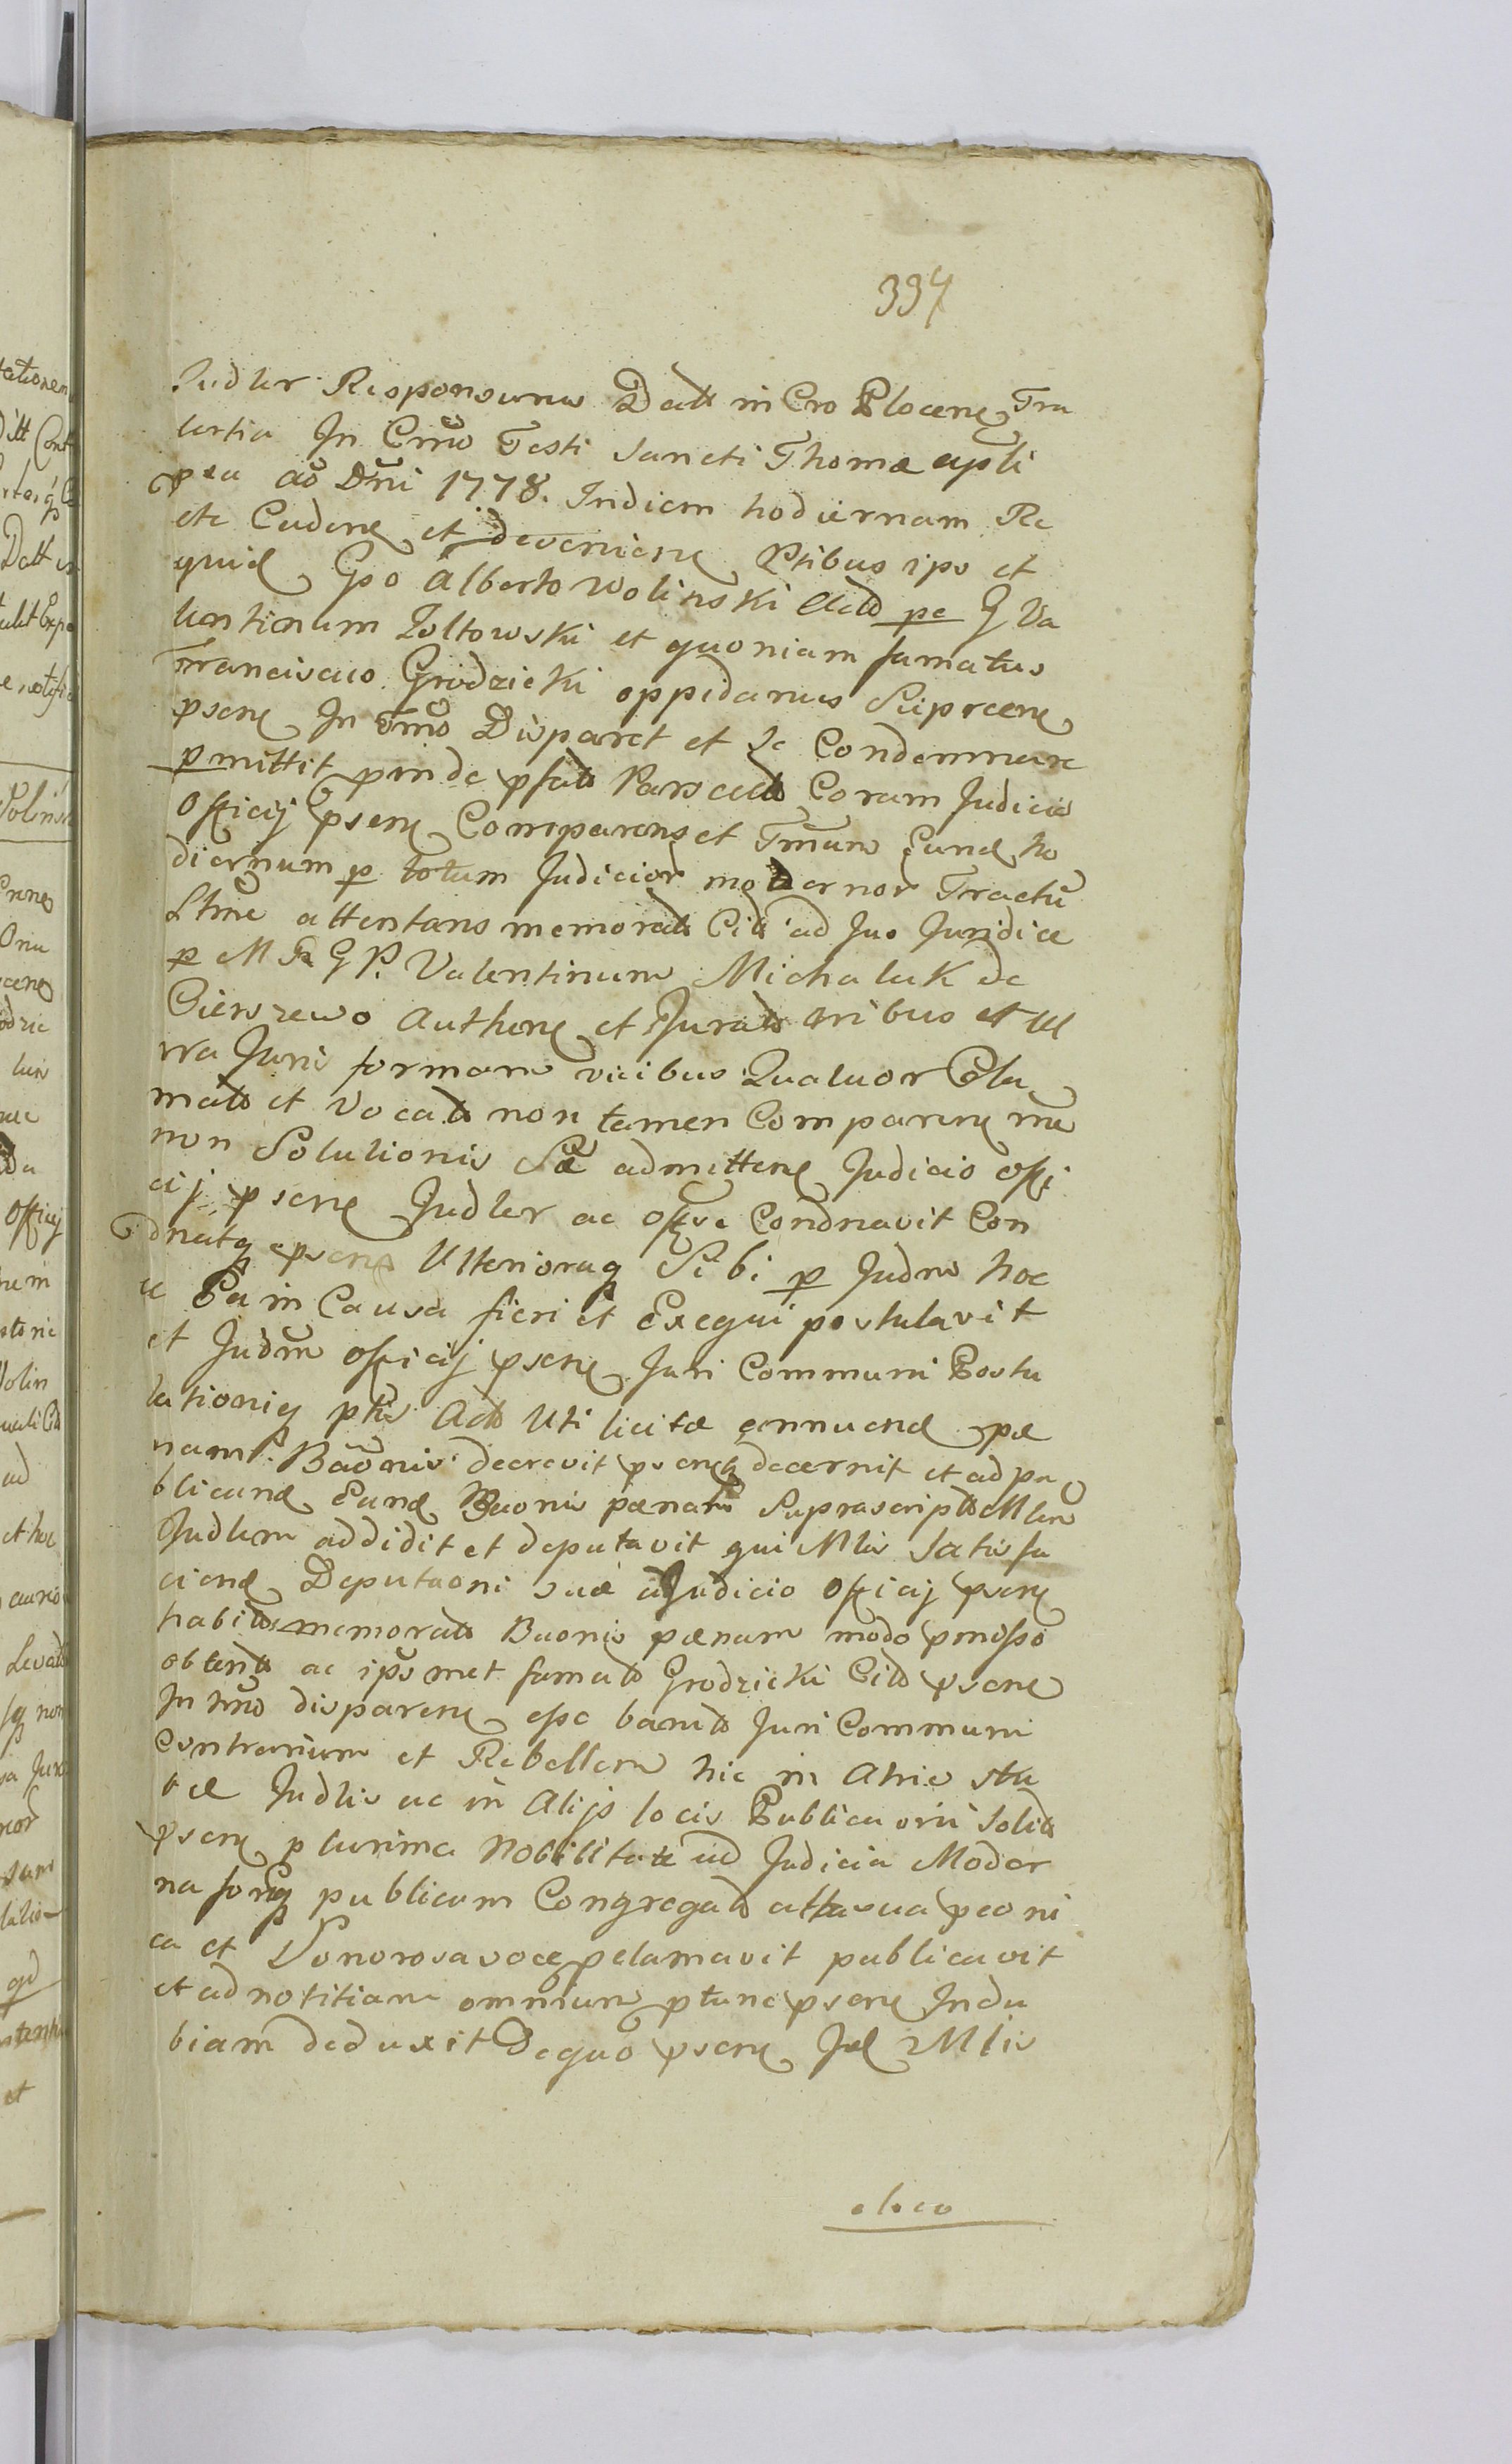 394
Judlr Responsuru Datt in Cro Plocen Fra
lertia In Crno Festi Sancti Thomæ apli
psa aõ Dni 1778. Indiem hodiernam Re
ete Caden et devenien Ptibus ipo et
quid Gso Alberto Wolinski Actto pe G Va
lentinum Zoltowski et quoniam famatus
Franciscus Grodzicki oppidanus Sieprcen
psen In Tmo Disparet et Se Condemnare
pmittit pinde pfatt Pars actt Coram Judicio
Officij psen Comparens et Tmum Eund ho
diernum p totum Judicior modernor Tractu
Ltme attentans memoratt Citt ad Jus Juridice
p M R G P. Valentinum Michaluk de
Cierszewo Authen et Juratt tribus et ul
tra Juris formam vicibus Quatuor Cla
matt et Vocatt non tamen Comparen me
non Solutionis Se admitten Judicio offi
cij psen Judlr ac offse Condnavit Con
dnatq psens Ulterioraq Sibi p Judm hoc
ce Ea in Causa fieri et Exequi postulavit
et Judm officij psen Juri Communi Postu
lationiq ptis Actt Uti licitæ annuend pæ
nam Baonis decrevit psenq decernit et ad pu
blicand Eund Baonis pænam Suprascriptt Mlem
Judlem addidit et deputavit qui Mlis Satisfa
ciend Deputaoni suæ a Judicio officij psen
habitt memoratt Baonis pænam modo pmisso
obtentt ac ipsmet famatt Grodzicki Citt psen
In tmo disparen esse banitt Juri Communi
Contrarium et Rebellem hic in Atrio Stu
bæ Judlis ac in Alijs locis Publica oni Solitt
psen plurima Nobilitate ad Judicia Moder
na forūq publicum Congregatt alta sua pconi
ca et Sonorosa voce pclamavit publicavit
et ad notitiam omnium ptunc psen Indu
biam deduxit Dequo psen Jd Mlis